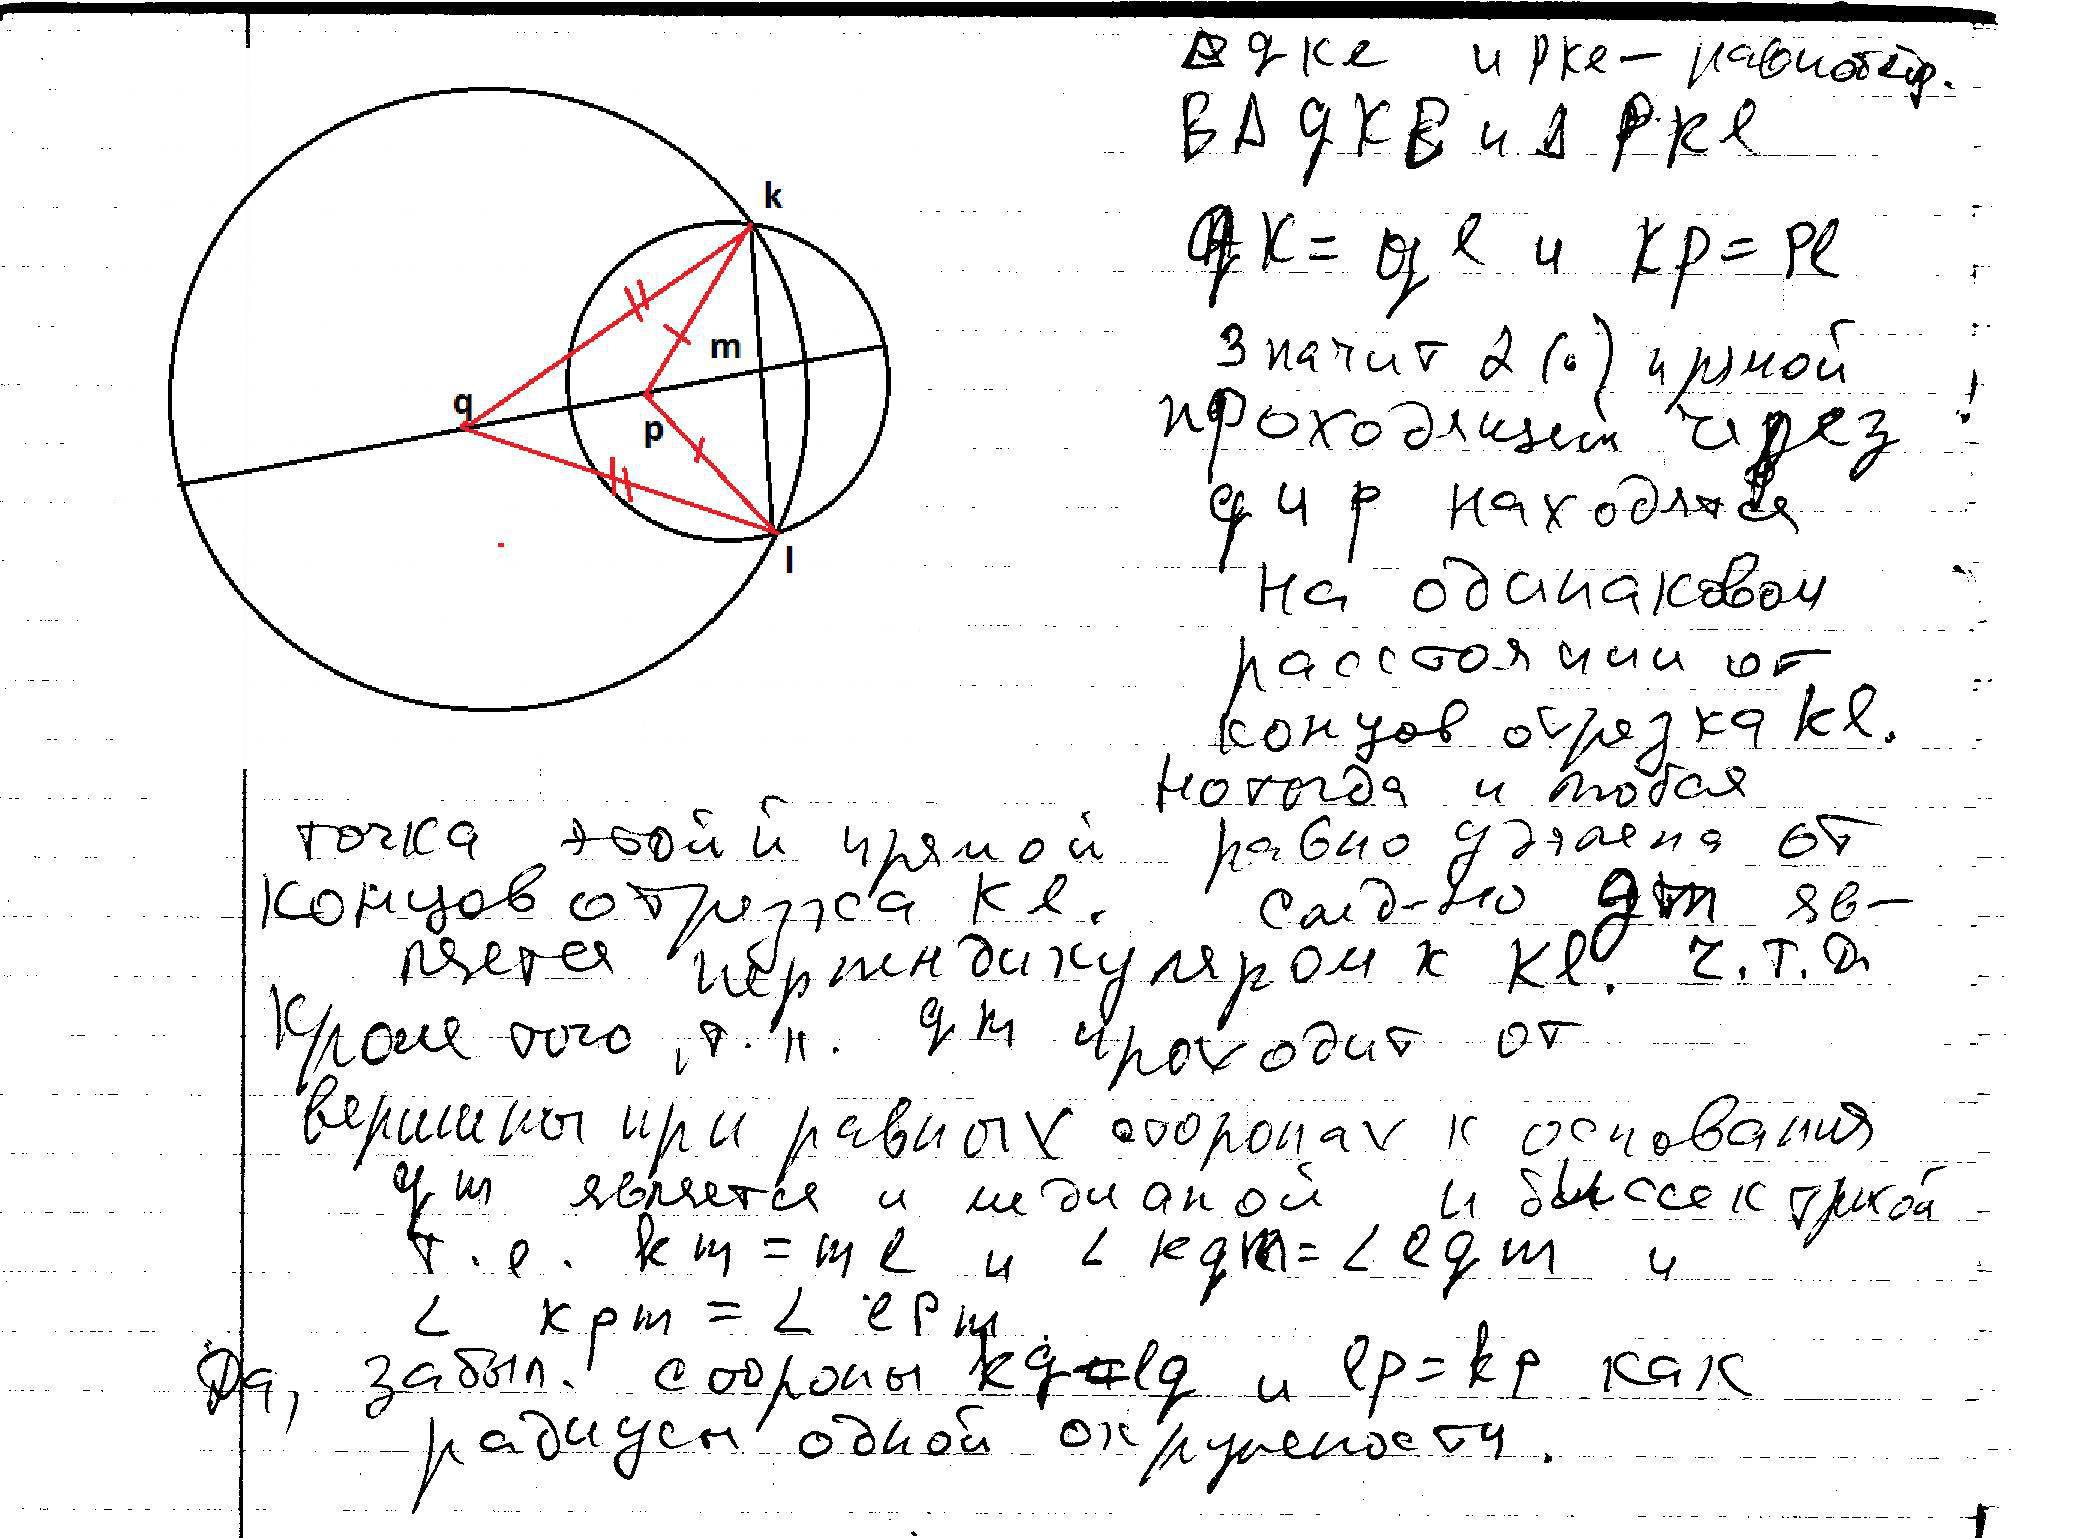 k
m
q
p
l
Δ qке и рке – равнобедр.
В Δ qKB и Δ PKl
qK = ql и Kp = Pl
Значит 2 (•) прямой
проходящей через
q и p находятся
на одинаковом
расстоянии от
концов отрезка kl.
Но тогда и любая
точка этой прямой равно удалена от
концов отрезка Kl. След-но qm яв-
ляется перпендикуляром к Kl. Ч.Т.Д
Кроме того, т.к. qm проходит от
вершины при равных сторонах к основания
qm является и медианой и биссектрисой
т.е. km = ml и ∠ kqm = ∠ lqm и
∠ kpm = ∠ lPm
Да, забыл. стороны kq=lq и lp = kp как
радиусы одной окружности.